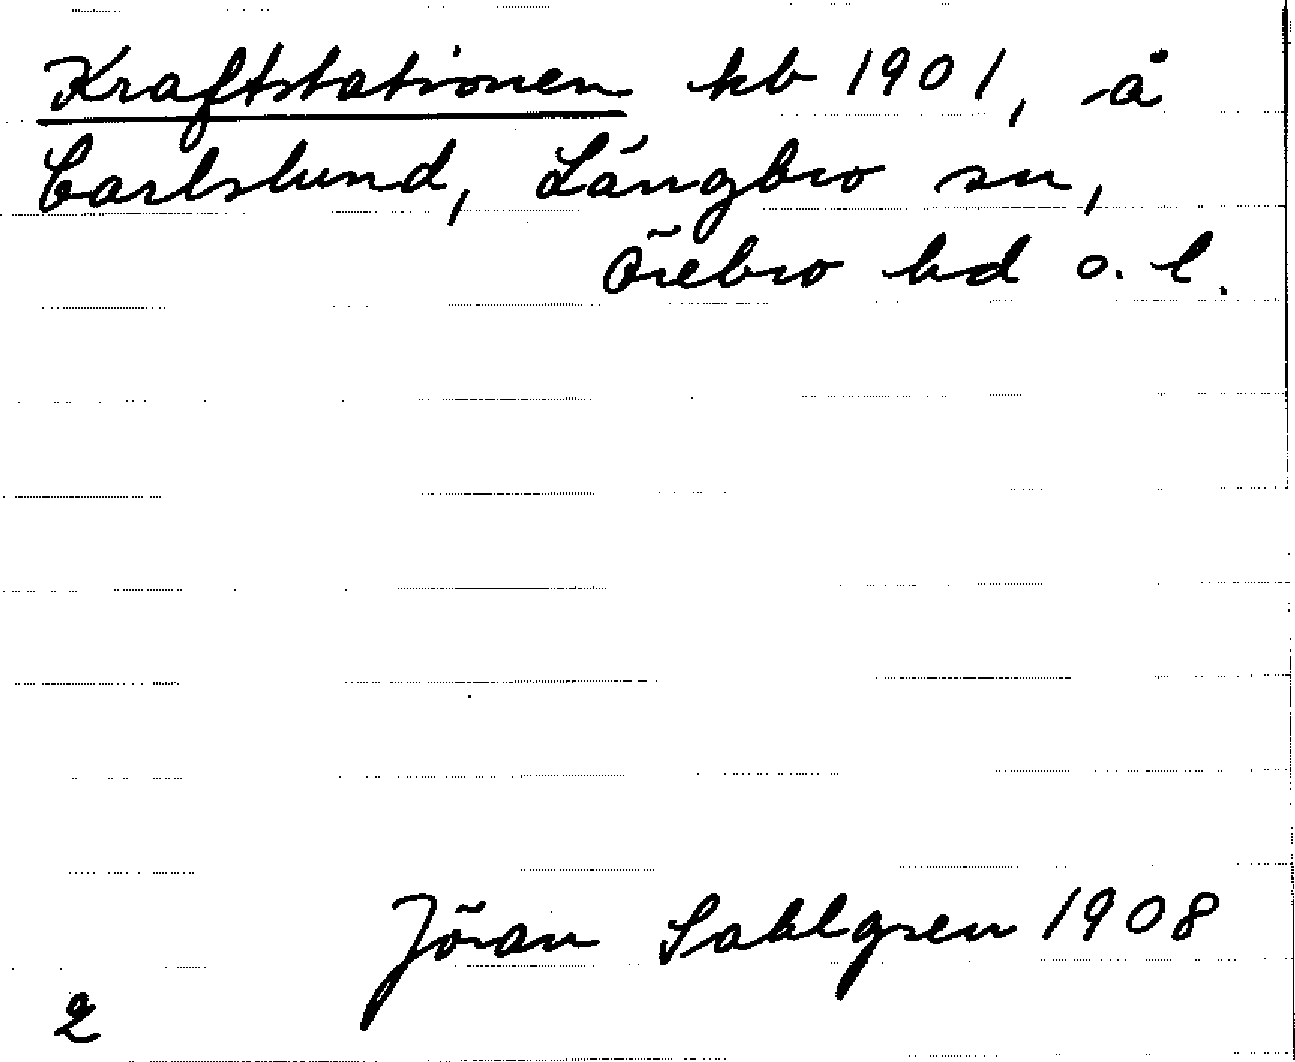 Kraftstationen kb 1901, å
Carlslund, Längbro sn,
Örebro hd o. l.
Jöran Sahlgren 1908
2